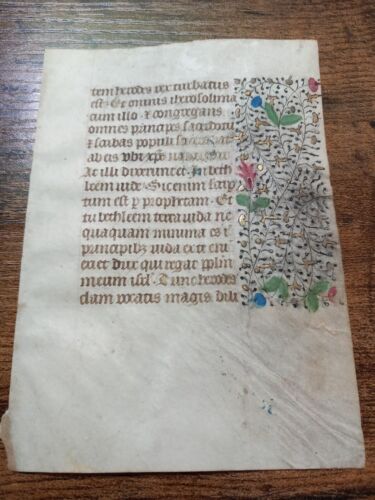 tem herodes rex turbatus
est. Et omnis iherosolima
cum illo. et congregans
omnes principes sacerdotū
et scribas populi
ab eis vbi xp̄s nasceretur
At illi dixerunt. In beth
leem iude. Sic enim scrip
tum est p prophetam. Et
tu bethleem terra iuda ne
quaquam minima es ī
principibꝫ iuda ex te enī
exiet dux qui regat pplm̄
meum isrl̄. Tunc herodes
clam vocatis magis dili